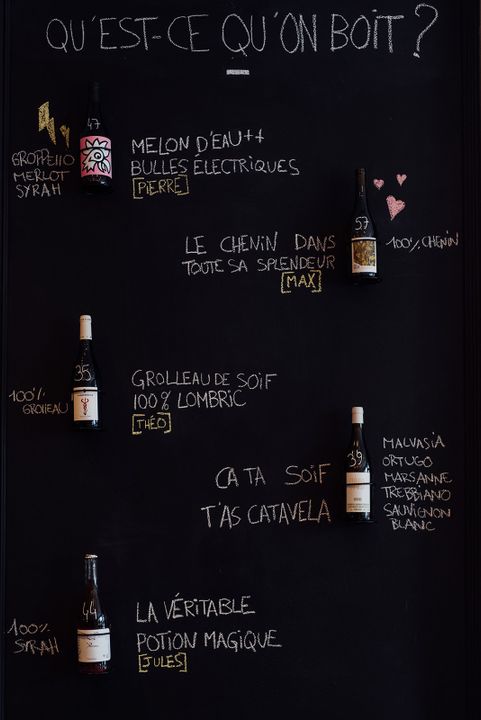 QU'EST-CE QU'ON BOIT?
47
GROPPELLO
MERLOT
SYRAH
MELON D'EAU++
BULLES ÉLECTRIQUES
[PIERRE]
LE CHENIN DANS
TOUTE SA SPLENDEUR
[MAX]
57
100% CHENIN
35
100%
GROLLEAU
GROLLEAU DE SOIF
100% LOMBRIC
[THÉO]
ÇA TA SOIF
T'AS CATAVELA
39
MALVASIA
ORTUGO
MARSANNE
TREBBIANO
SAUVIGNON
BLANC
44
100%
SYRAH
LA VÉRITABLE
POTION MAGIQUE
[JULES]